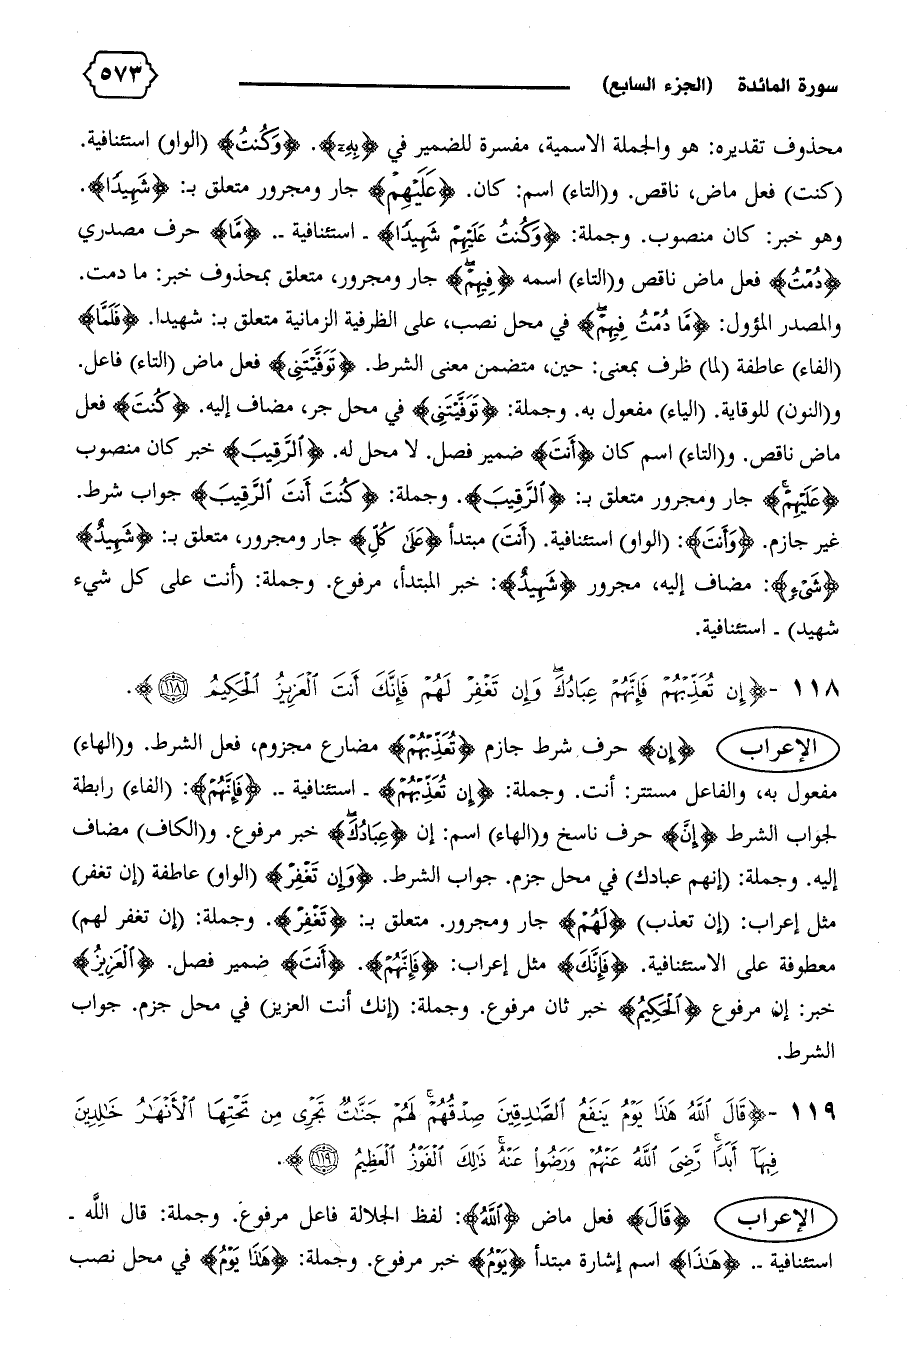 سورة المائدة (الجزء السابع) ٥٧٣
محذوف تقديره: هو والجملة الاسمية، مفسرة للضمير في ﴿بِهِۦ﴾. ﴿وَكُنتُ﴾ (الواو) استئنافية.
(كنت) فعل ماض، ناقص. و(التاء) اسم: كان. ﴿عَلَيْهِمْ﴾ جار ومجرور متعلق بـ: ﴿شَهِيدًا﴾.
وهو خبر: كان منصوب. وجملة: ﴿وَكُنتُ عَلَيْهِمْ شَهِيدًا﴾ ـ استئنافية ـ. ﴿مَّا﴾ حرف مصدري
﴿دُمْتُ﴾ فعل ماض ناقص و(التاء) اسمه ﴿فِيهِمْ﴾ جار ومجرور، متعلق بمحذوف خبر: ما دمت.
والمصدر المؤول: ﴿مَّا دُمْتُ فِيهِمْ﴾ في محل نصب، على الظرفية الزمانية متعلق بـ: شهيدا. ﴿فَلَمَّا﴾
(الفاء) عاطفة (لما) ظرف بمعنى: حين، متضمن معنى الشرط. ﴿تَوَفَّيْتَنِى﴾ فعل ماض (التاء) فاعل.
و(النون) للوقاية. (الياء) مفعول به. وجملة: ﴿تَوَفَّيْتَنِى﴾ في محل جر، مضاف إليه. ﴿كُنتَ﴾ فعل
ماض ناقص. و(التاء) اسم كان ﴿أَنتَ﴾ ضمير فصل. لا محل له. ﴿ٱلرَّقِيبَ﴾ خبر كان منصوب
﴿عَلَيْهِمْ﴾ جار ومجرور متعلق بـ: ﴿ٱلرَّقِيبَ﴾. وجملة: ﴿كُنتَ أَنتَ ٱلرَّقِيبَ﴾ جواب شرط.
غير جازم. ﴿وَأَنتَ﴾: (الواو) استئنافية. (أنت) مبتدأ ﴿عَلَىٰ كُلِّ﴾ جار ومجرور، متعلق بـ: ﴿شَهِيدٌ﴾
﴿شَىْءٍ﴾: مضاف إليه، مجرور ﴿شَهِيدٌ﴾: خبر المبتدأ، مرفوع. وجملة: (أنت على كل شيء
شهيد) ـ استئنافية.
١١٨ -﴿إِن تُعَذِّبْهُمْ فَإِنَّهُمْ عِبَادُكَ وَإِن تَغْفِرْ لَهُمْ فَإِنَّكَ أَنتَ ٱلْعَزِيزُ ٱلْحَكِيمُ ١١٨﴾.
الإعراب ﴿إِن﴾ حرف شرط جازم ﴿تُعَذِّبْهُمْ﴾ مضارع مجزوم، فعل الشرط. و(الهاء)
مفعول به، والفاعل مستتر: أنت. وجملة: ﴿إِن تُعَذِّبْهُمْ﴾ ـ استئنافية ـ. ﴿فَإِنَّهُمْ﴾: (الفاء) رابطة
لجواب الشرط ﴿إِنَّ﴾ حرف ناسخ و(الهاء) اسم: إن ﴿عِبَادُكَ﴾ خبر مرفوع. و(الكاف) مضاف
إليه. وجملة: (إنهم عبادك) في محل جزم. جواب الشرط. ﴿وَإِن تَغْفِرْ﴾ (الواو) عاطفة (إن تغفر)
مثل إعراب: (إن تعذب) ﴿لَهُمْ﴾ جار ومجرور. متعلق بـ: ﴿تَغْفِرْ﴾. وجملة: (إن تغفر لهم)
معطوفة على الاستئنافية. ﴿فَإِنَّكَ﴾ مثل إعراب: ﴿فَإِنَّهُمْ﴾. ﴿أَنتَ﴾ ضمير فصل. ﴿ٱلْعَزِيزُ﴾
خبر: إن مرفوع ﴿ٱلْحَكِيمُ﴾ خبر ثان مرفوع. وجملة: (إنك أنت العزيز) في محل جزم. جواب
الشرط.
١١٩ -﴿قَالَ ٱللَّهُ هَٰذَا يَوْمُ يَنفَعُ ٱلصَّٰدِقِينَ صِدْقُهُمْ ۚ لَهُمْ جَنَّٰتٌ تَجْرِى مِن تَحْتِهَا ٱلْأَنْهَٰرُ خَٰلِدِينَ
فِيهَآ أَبَدًا ۚ رَّضِىَ ٱللَّهُ عَنْهُمْ وَرَضُوا۟ عَنْهُ ۚ ذَٰلِكَ ٱلْفَوْزُ ٱلْعَظِيمُ ١١٩﴾.
الإعراب ﴿قَالَ﴾ فعل ماض ﴿ٱللَّهُ﴾: لفظ الجلالة فاعل مرفوع. وجملة: قال اللَّه ـ
استئنافية ـ. ﴿هَٰذَا﴾ اسم إشارة مبتدأ ﴿يَوْمُ﴾ خبر مرفوع. وجملة: ﴿هَٰذَا يَوْمُ﴾ في محل نصب